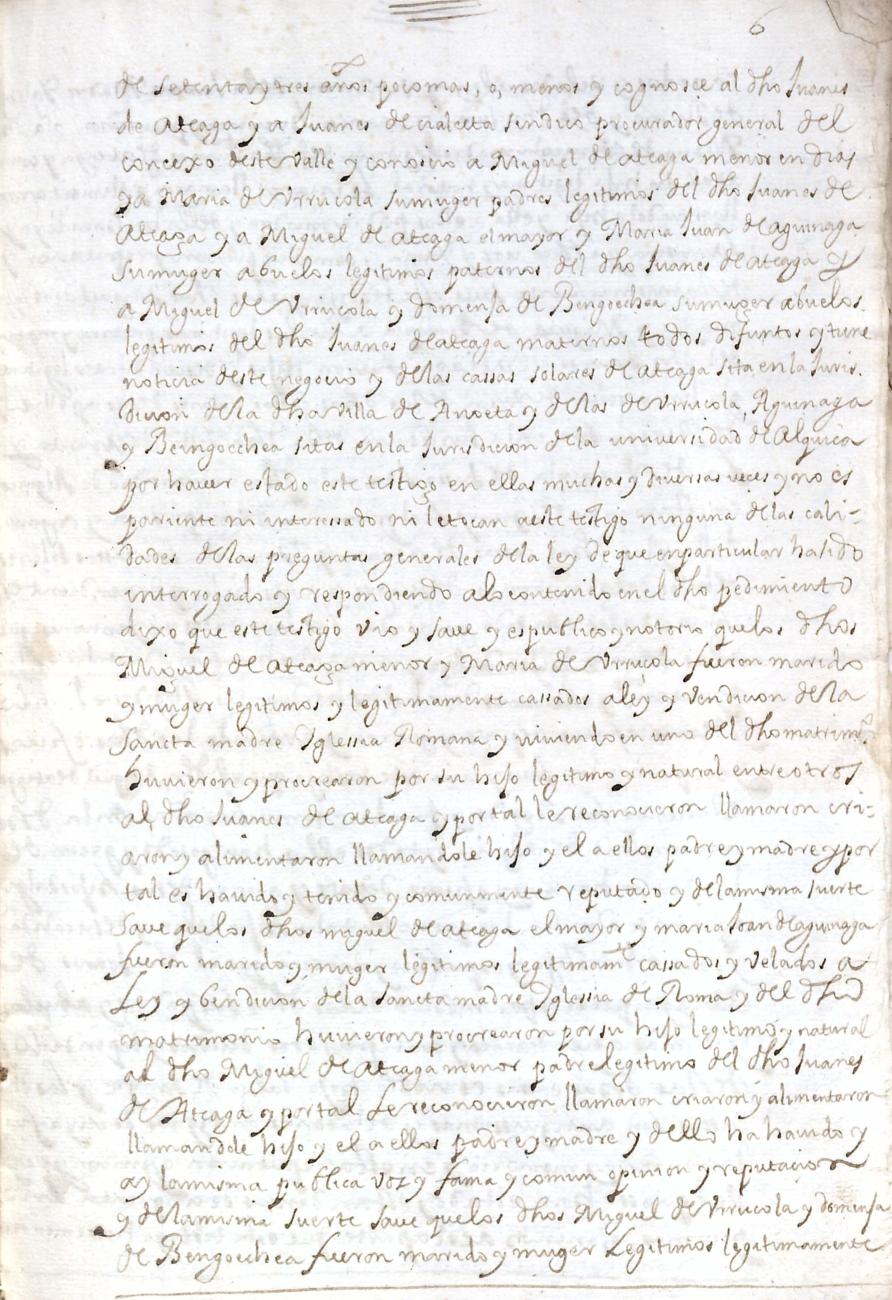 6
de setenta y tres años poco mas, o, menos y cognosce al dho Juanes
de Ateaga y a Juanes de cialceta sindico procurador general del
concexo deste valle y conocio a Miguel de ateaga menor en dias
y a Maria de Vrrucola su muger padres legitimos del dho Juanes de
Ateaga y a Miguel de ateaga el mayor y Maria Juan de aguinaga
su muger abuelos legitimos paternos del dho Juanes de ateaga y
a Miguel de Vrrucola y domensa de Bengoechea su muger abuelos
legitimos del dho Juanes de ateaga maternos todos difuntos y tiene
noticia deste negocio y de las cassas solares de Ateaga sita en la Juris.
dicion de la dha villa de Anoeta y de las de Vrrucola, Aguinaga
y Beingoechea sitas en la Jurisdicion de la universidad de Alquica
por haver estado este testigo en ellas muchas y diversas veces y no es
pariente ni interessado ni le tocan a este testigo ninguna de las cali-
dades de las preguntas generales de la ley de que en particular ha sido
interrogado y respondiendo a lo contenido en el dho pedimiento
dixo que este testigo vio y save y es publico y notorio que los dhos
Miguel de ateaga menor y Maria de Vrrucola fueron marido
y muger legitimos y legitimamente cassados a ley y vendicion de la
sancta madre Iglessia Romana y viviendo en uno del dho matrimº
huvieron y procrearon por su hijo legitimo y natural entre otros
al dho Juanes de ateaga y por tal le reconocieron llamaron cri-
aron y alimentaron llamandole hijo y el a ellos padre y madre y por
tal es havido y tenido y comunmente reputado y de la misma suerte
save que los dhos miguel de ateaga el mayor y maria Joan de aguinaga
fueron marido y muger legitimos legitimamte cassados y velados a
Ley y bendicion de la sancta madre Iglessia de Roma y del dho
matrimonio huvieron y procrearon por su hijo legitimo y natural
al dho Miguel de Ateaga menor padre legitimo del dho Juanes
de Ateaga y por tal Le reconocieron llamaron criaron y alimentaron
llamandole hijo y el a ellos padre y madre y dello ha havido y
ay la misma publica voz y fama y comun opinion y reputacion
y de la misma suerte save que los dhos Miguel de Vrrucola y domensa
de Bengoechea fueron marido y muger Legitimos legitimamente